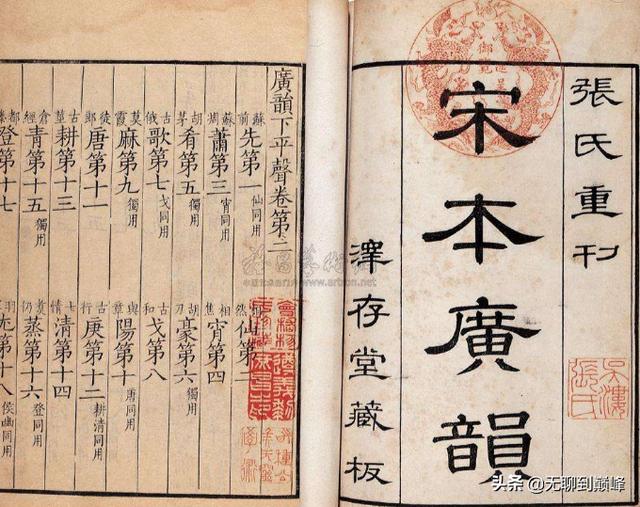 張氏重刊
宋本廣韻
澤存堂藏板
御覽
張氏
廣韻下平聲卷第二
蘇前先第一仙同用 相然仙第二
蘇凋蕭第三宵同用 相焦宵第四
胡茅肴第五獨用 胡刀豪第六獨用
古俄歌第七戈同用 古和戈第八
莫霞麻第九獨用 與章陽第十唐同用
徒郎唐第十一 古行庚第十二耕清同用
古莖耕第十三 七情清第十四
倉經青第十五獨用 仍蒸第十六登同用
都登第十七 羽尤第十八侯幽同用
www.artron.net
头条 @无聊到巅峰